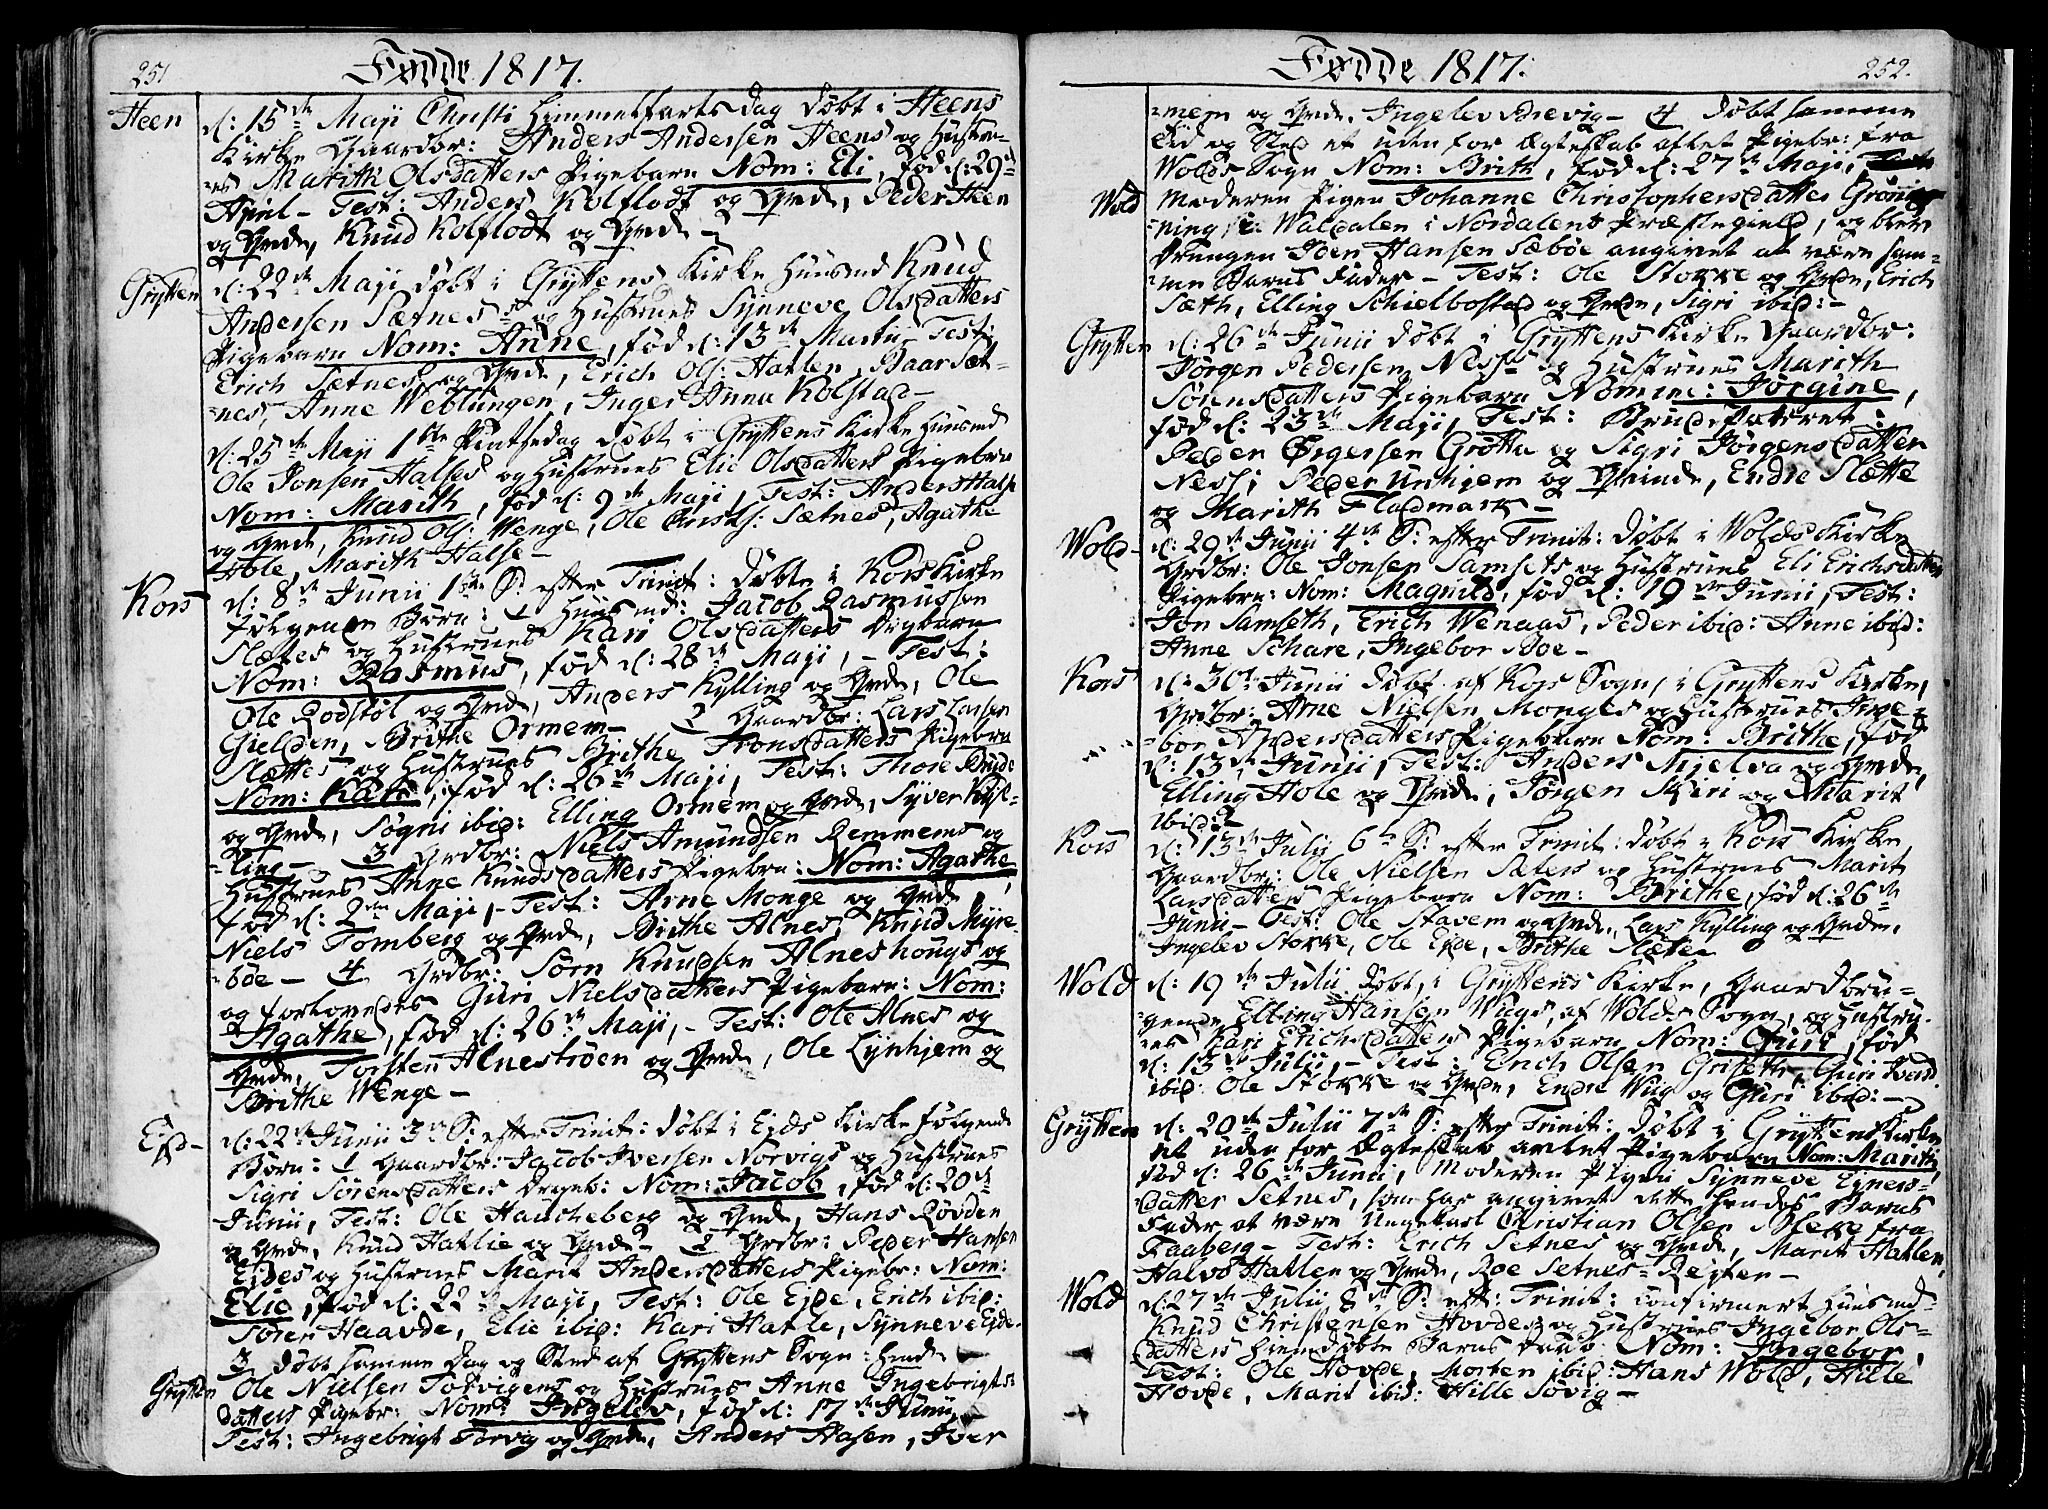 251
Fødde 1817.
Heen
d: 15de Maji Christi Himmelfarts Dag døbt i Heens
Kirke Gaardbr: Anders Andersen Heens og Hustru-
-es Marith Olsdatters Pigebarn Nom: Eli, fød d: 29de
April - Test: Anders Kolflodt og Qvde, Peder Heen
og Qvde, Knud Kolflodt og Qvde -
Grytten
d: 22de Maji døbt i Gryttens Kirke Huusmd Knud
Andersen Sætnes og Hustrues Synneve Olsdatters
Pigebarn Nom: Anne, fød d: 13de Martii Test:
Erich Sætnes og Qvde, Erich Ols: Hatlen, Baar Sæt-
-nes, Anne Weblungen, Inger Anna Kolstad -
d: 25de Maji 1ste Pintsedag døbt i Gryttens Kirke Huusmd
Ole Jonsen Halses og Hustrues Elie Olsdatters Pigebrn
Nom: Marith, fød d: 9de Maji, Test: Anders Halse
og Qvde, Knud Ols: Wenge, Ole Sætnes, Agathe
Hole, Marith Halse -
Kors
d: 8de Junii 1ste S: efter Trinit: døbte i Kors Kirke
følgende Børn: 1 Huusmd: Jacob Rasmussen
Slettes og Hustrues Kari Olsdatters Drgbarn
Nom: Rasmus, fød d: 28de Maji, - Test:
Ole Rodstøl og Qvde, Anders Kylling og Qvde, Ole
Gielden, Brithe Ormem - 2 Gaardbr: Lars Larsen
Slættes og Hustrues Brithe Tronsdatters Pigebarn
Nom: , fød d: 26de Maji, Test: Thore Brude
og Qvde, Søgni ibid: Elling Ormem og Qvde, Syver Kyl-
-ling - 3 Grdbr: Niels Amundsen Remmems og
Hustrues Anne Knudsdatters Pigebrn: Nom: Agathe
fød d: 2den Maji, - Test: Arne Monge og Qvde,
Niels Tomberg og Qvde, Brithe Alnes, Knud Myre-
bøe - 4 Grdbr: Sørn Knudsen Alneshougs og
og forlovedes Guri Nielsdatters Pigebarn: Nom:
Agathe, fød d: 26de Maji, - Test: Ole Alnes og
Qvde, Torsten Alnestrøen og Qvde, Ole Lynhjem og
Brithe Wenge -
Ejd -
d: 22de Junii 3die S: efter Trinit: døbt i Ejds Kirke følgende
Børn: 1 Gaardbr: Jacob Iversen Norvigs og Hustrues
Sigri Sørensdatters Drgeb: Nom: Jacob, fød d: 20de
Junii, Test: Ole Haucheberg og Qvde, Hans Røvden
og Qvde, Knud Hatlie og Qvde - 2 Grdbr: Peder Hansen
Ejdes og Hustrues Marit Andersdatters Pigebr: Nom:
Elie, fød d: 22de Maji, Test: Ole Ejde, Erich ibid:
Søren Haavde, Elie ibid: Kari Hatle, Synneve Ejde -
3 døbt samme Dag og Sted af Gryttens Sogn:
Grytten
Ole Nielsen Torvigens og Hustrues Anne Ingebrigts:
datters Pigebr: Nom: Ingelev, fød d: 17de Junii,
Test: Ingebrigt Torvig og Qvde, Anders Aasen, Iver
252.
Fødde 1817:
-mem og Qvde, Ingelev Brevig - 4 døbt samme
Tid og Sted et uden for Ægteskab aflet Pigebr: fra
Wolds Sogn Nom: Brith, fød d: 27de Maji,
Wold
Moderen Pigen Johanne Christophersdatter Grønni
-ning i Waldalen i Nordalens Præstegield, og blev
Drengen Iver Hansen Sæbøe angivet at være sam-
-me Barns Fader - Test: Ole Stokke og Qvde, Erich
Sæth, Elling Schielbostad og Qvde, Sigri ibid: -
Grytten
d: 26de Junii døbt i Gryttens Kirke Gaardbr:
Jørgen Pedersen Ness og Hustrues Marith
Sørensdatters Pigebarn Nomine: Jørgine,
fød d: 23de Maji, Test: Brudeparret:
Peder Ørgersen Grøtta og Sigri Jørgensdatter
Ness; Peder Unhjem og Qvinde, Endre Slætte
og Marith Flademark -
Wold -
d: 29de Junii 4de S: efter Trinit: døbt i Wolds Kirke
Grdbr: Ole Jonsen Samsets og Hustrues Eli Erichsdatter
Pigebrn: Nom: Magnild, fød d: 19de Junii, Test:
Jon Samseth, Erich Wenaas, Peder ibid: Anne ibid:
Anne Schare, Ingebor Boe -
Kors
d: 30de Junii døbt af Kors Sogn, i Gryttens Kirke,
Grdbr: Arne Nielsen Monges og Hustrues Inge-
-bor Andersdatters Pigebarn Nom: Brithe, fød
d: 13de Junii, Test: Anders Mjelva og Qvde,
Elling Hole og Qvde, Jørgen Skiri og Marit
ibid:
Kors
d: 13de Julii 6te S: efter Trinit: døbt i Kors Kirke
Gaardbr: Ole Nielsen Sæters og Hustrues Marit
Larsdatters Pigebarn Nom: Brithe, fød d: 26de
Junii - Test: Ole Stavem og Qvde, Lars Kylling og Qvde,
Ingelev Stokke, Ole Ejde, Brithe
Wold
d: 19de Julii døbt, i Gryttens Kirke, Gaardbru-
-gende Elling Hansen Wiigs, af Wolds Sogn, og Hustru-
-es Kari Erichsdatters Pigebarn Nom: Guri, fød
d: 13de Julii, - Test: Erich Olsen Griseth, Guri
ibid: Ole Stokke og Qvde, Endre Wiig og Guri ibid: -
Grytten
d: 20de Julii 7de S: efter Trinit: døbt i Gryttens Kirke
et uden for Ægteskab avlet Pigebarn Nom: Marith,
fød d: 26de Junii, Moderen Pigen Synneve Ejners-
-datter Setnes, som har angivet dette hendes Barns
Fader at være Ungekarl Christian Olsen Bleke fra
Faaberg - Test: Erich Setnes og Qvde, Marit Hatlen,
Halvo Hatlen og Qvde, Roe Setnes-Rejten -
Wold
d: 27de Julii 8de S: eft: Trinit: confirmert Huusmd-
Knud Christensen Hovdes og Hustrues Ingebor Ols-
-datters hiemdøbte Barns Daab Nom: Ingebor,
Test: Ole Hovde, Morten ibid: Hans Wold, Hille
Hovde, Marit ibid: Hille Søvig -